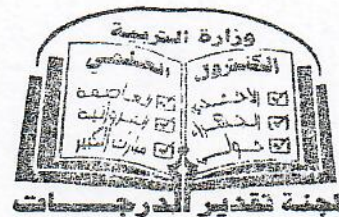 وزارة التربية
الكنترول العلمي
الأحمدي
العاصمة
الفروانية
حولي
مبارك الكبير
لجنة تقدير الدرجات